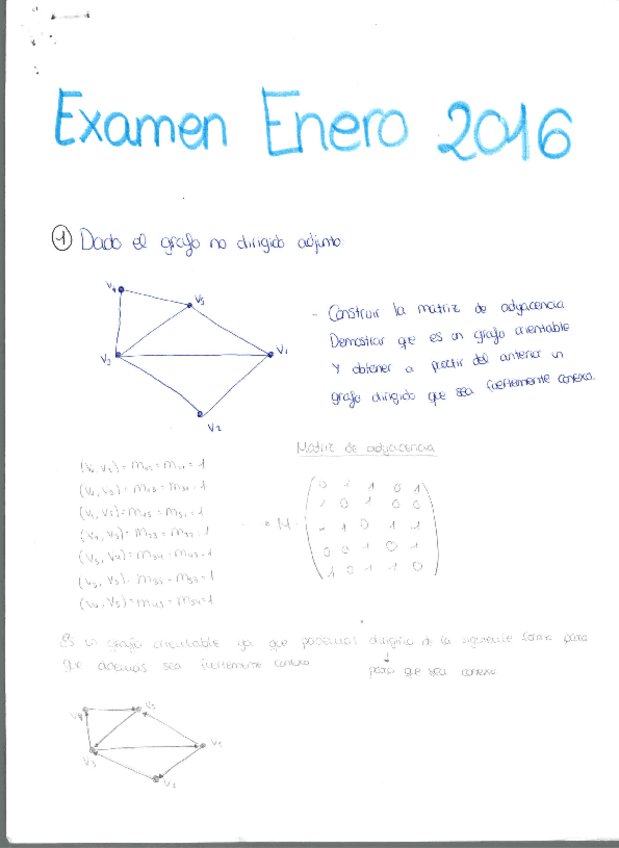 Examen Enero 2016
1 Dado el grafo no dirigido adjunto:
V4
V5
V3
V1
V2
- Construir la matriz de adyacencia.
Demostrar que es un grafo orientable
y obtener a partir del anterior un
grafo dirigido que sea fuertemente conexo.
Matriz de adyacencia
= 1
= 1
= 1
= 1
= 1
= 1
= 1
M
0 1 1 0 1
1 0 1 0 0
1 1 0 1 1
0 0 1 0 1
1 0 1 1 0
Es un grafo orientable ya que podemos dirigirlo de la siguiente forma para
que además sea fuertemente conexo
para que sea conexo
V4
V5
V3
V1
V2